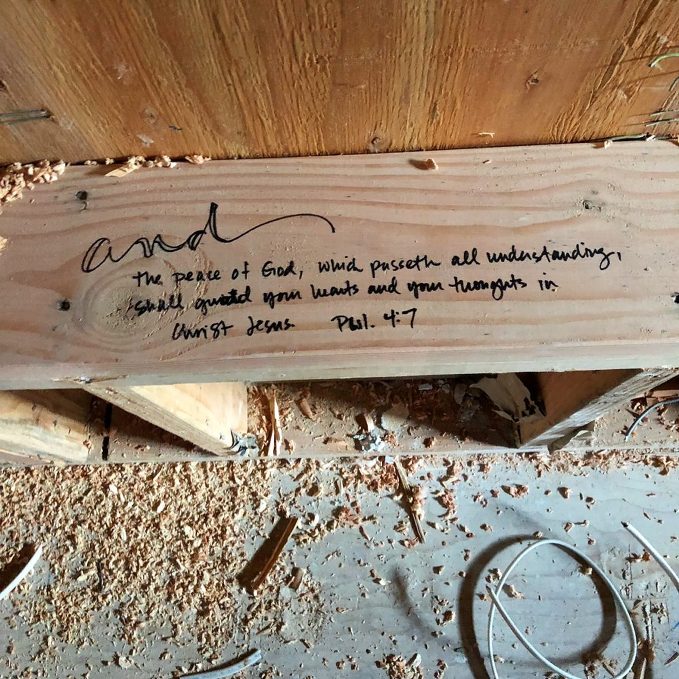 and
the peace of God, which passeth all understanding,
shall guard your hearts and your thoughts in
Christ Jesus. Phil. 4:7